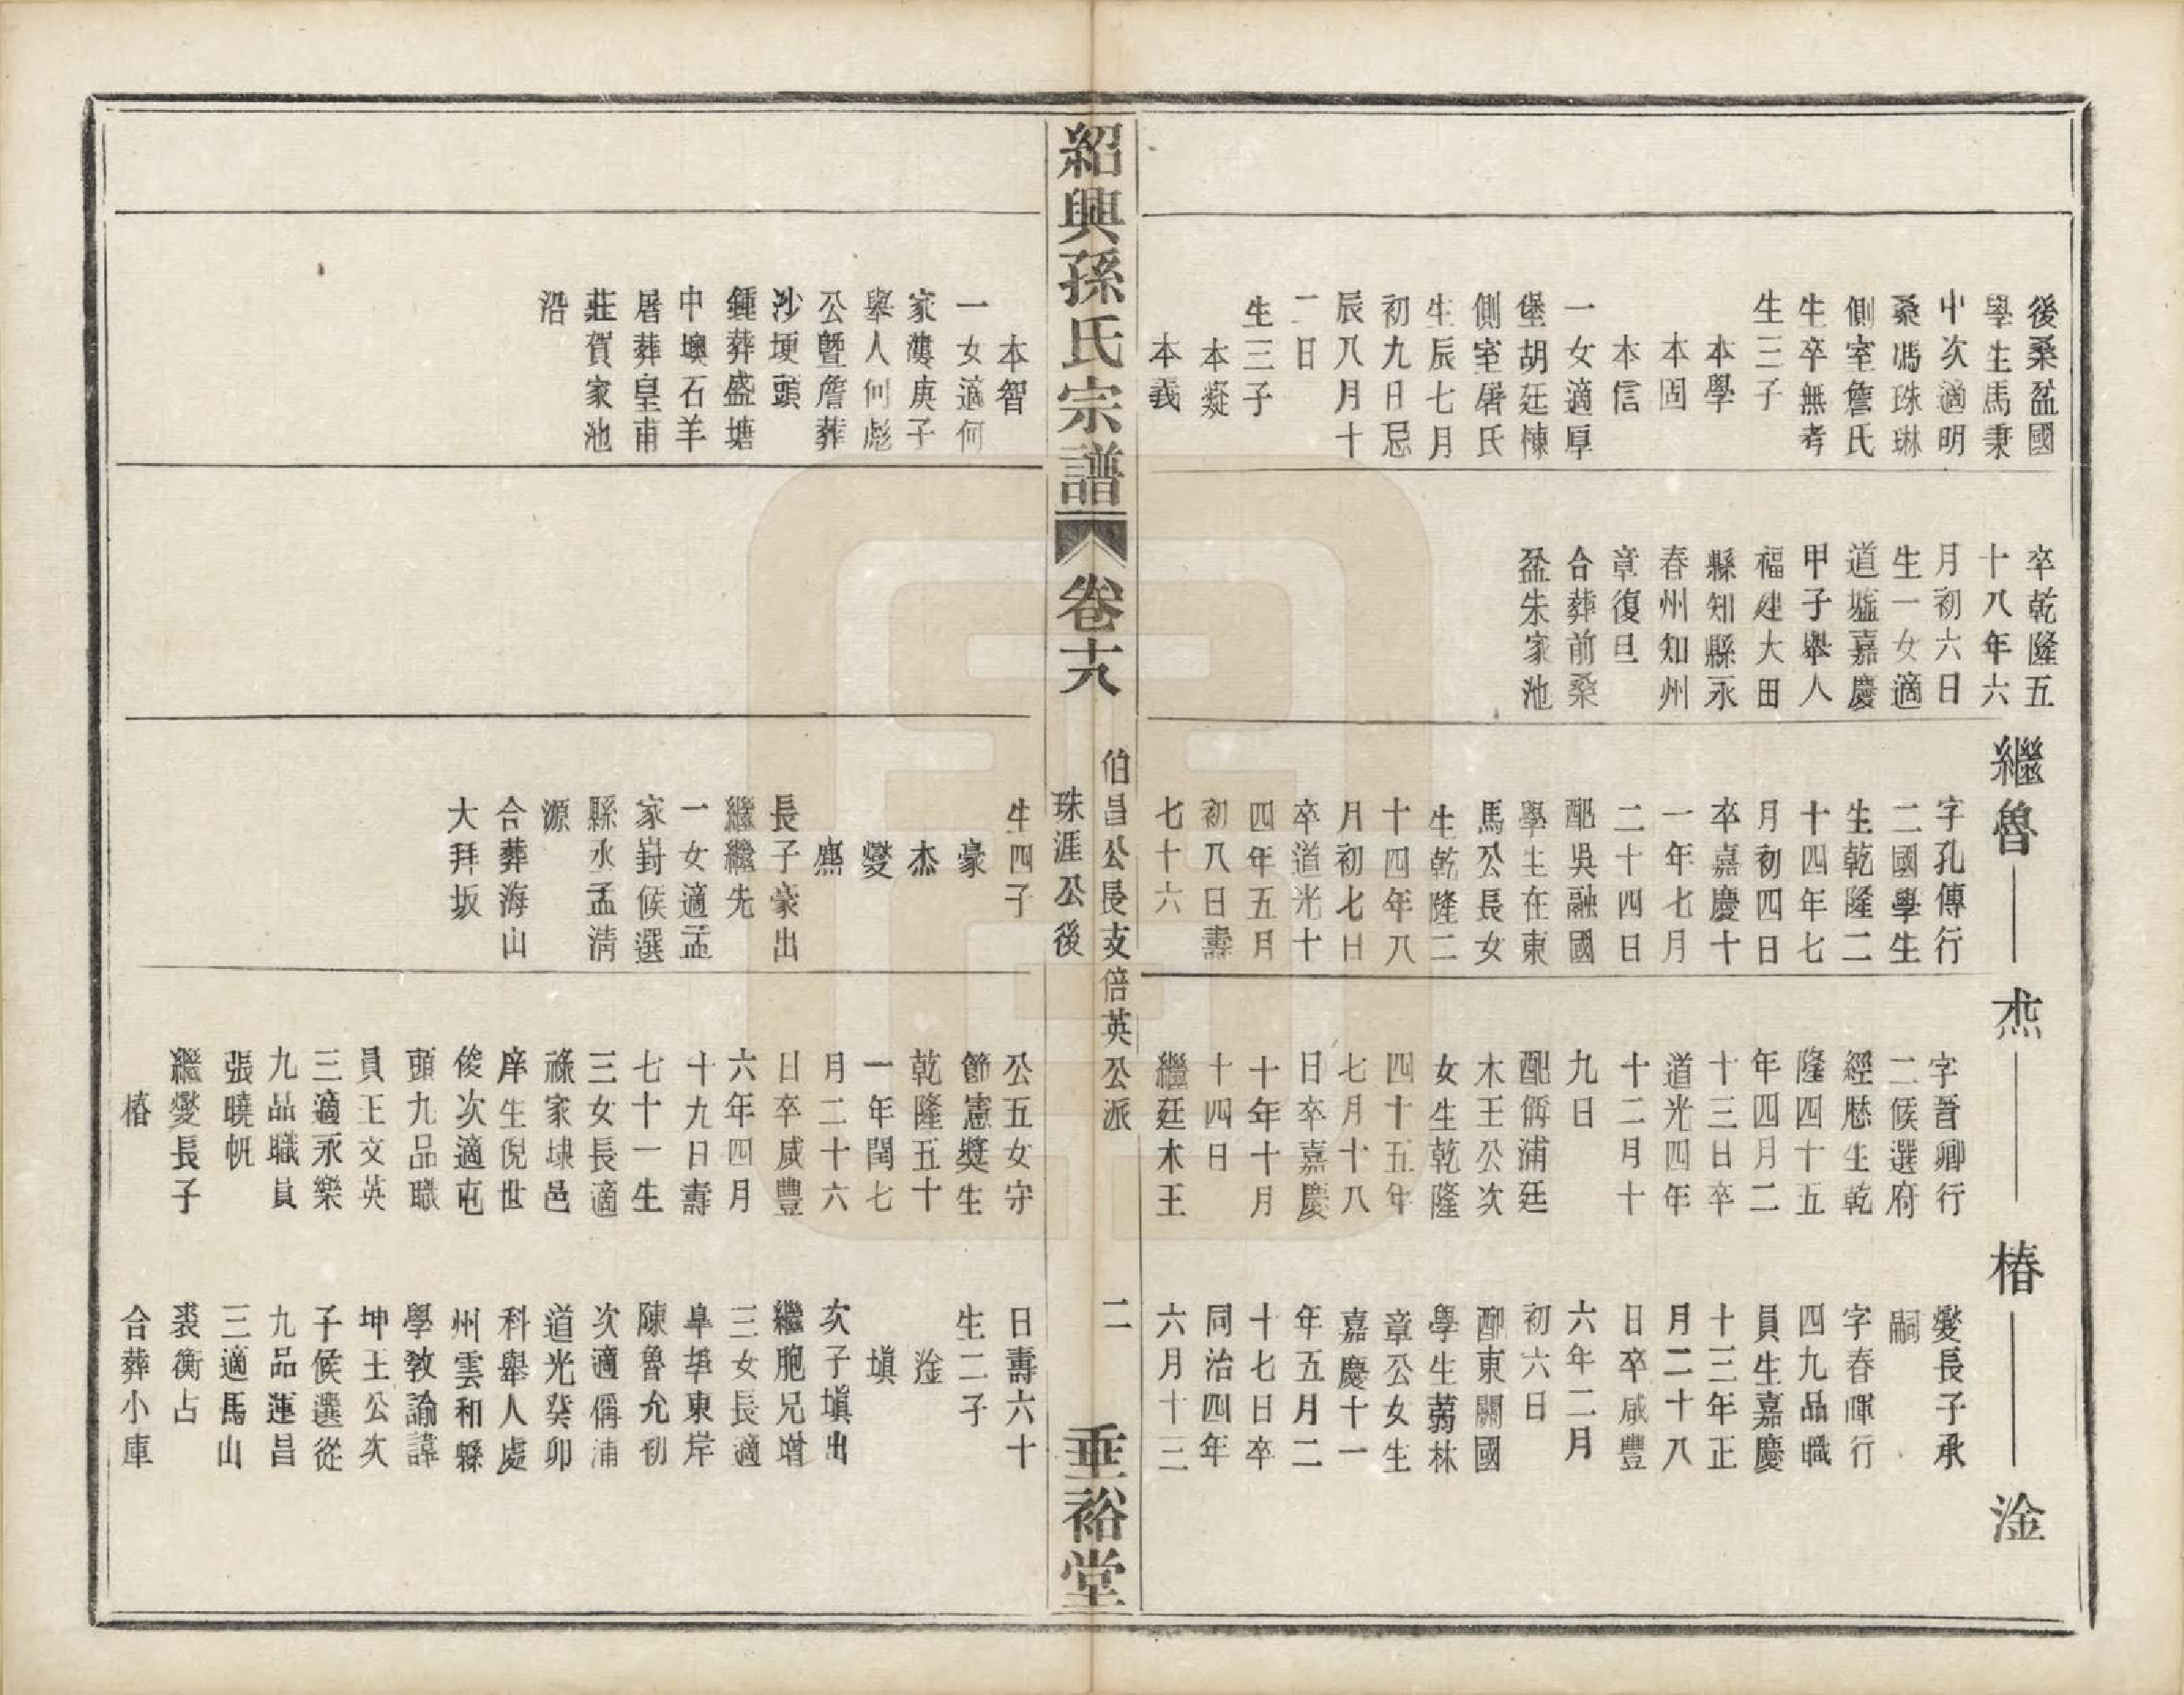 後桑盆國
學生馬秉
中次適明
桑馮珠琳
側室詹氏
生卒無考
生三子
本學
本固
本信
一女適厚
堡胡廷棟
側室屠氏
生辰七月
初九日忌
辰八月十
二日
生三子
本凝
本義
卒乾隆五
十八年六
月初六日
生一女適
道墟嘉慶
甲子舉人
福建大田
縣知縣永
春州知州
章復旦
合葬前桑
盆朱家池
繼魯
字孔傳行
二國學生
生乾隆二
十四年七
月初四日
卒嘉慶十
一年七月
二十四日
配吳融國
學生在東
馬公長女
生乾隆二
十四年八
月初七日
卒道光十
四年五月
初八日壽
七十六
杰
字晉卿行
二候選府
經歷生乾
隆四十五
年四月二
十三日卒
道光四年
十二月十
九日
配偁浦廷
木王公次
女生乾隆
四十五年
七月十八
日卒嘉慶
十年十月
十四日
繼廷木王
椿
燮長子承
嗣
字春暉行
四九品職
員生嘉慶
十三年正
月二十八
日卒咸豐
六年二月
初六日
配東關國
學生蒻林
章公女生
嘉慶十一
年五月二
十七日卒
同治四年
六月十三
淦
紹興孫氏宗譜 卷十八
伯昌公長支倍英公派
珠涯公後
二
垂裕堂
本智
一女適何
家漊庚子
舉人何彪
公暨詹葬
沙埂頭
鍾葬盛塘
中墺石羊
屠葬皇甫
莊賀家池
沿
生四子
豪
杰
燮
熊
長子豪出
繼繼先
一女適孟
家葑候選
縣水孟清
源
合葬海山
大拜坂
公五女守
節憲獎生
乾隆五十
一年閏七
月二十六
日卒咸豐
六年四月
十九日壽
七十一生
三女長適
祿家埭邑
庠生倪世
俊次適屯
頭九品職
員王文英
三適永樂
九品職員
張曉帆
繼燮長子
椿
日壽六十
生二子
淦
塡
次子塡出
繼胞兄增
三女長適
阜埠東岸
陳魯允初
次適偁浦
道光癸卯
科舉人處
州雲和縣
學教諭諱
坤王公次
子候選從
九品蓮昌
三適馬山
裘衡占
合葬小庫